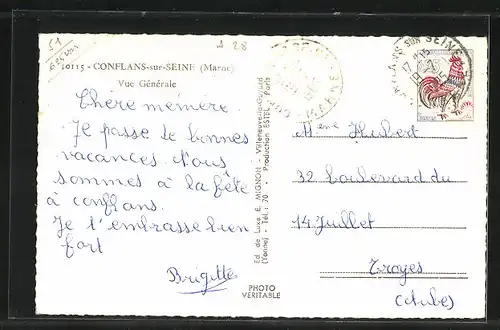 51
A 28
10115 - CONFLANS-sur-SEINE (Marne)
Vue Générale
Chère mémère.
Je passe de bonnes
vacances. Nous
sommes à la fête
à conflans.
Je t'embrasse bien
fort
Brigitte
PHOTO
VÉRITABLE
Ed. de Luxe E. MIGNON - Villeneuve-la-Guyard
(Yonne) - Tél. 70 - Production ESTEL, Paris
MARNE
CONFLANS SUR SEINE
Mme Hubert
32 boulevard du
14 Juillet
Troyes
(Aube)